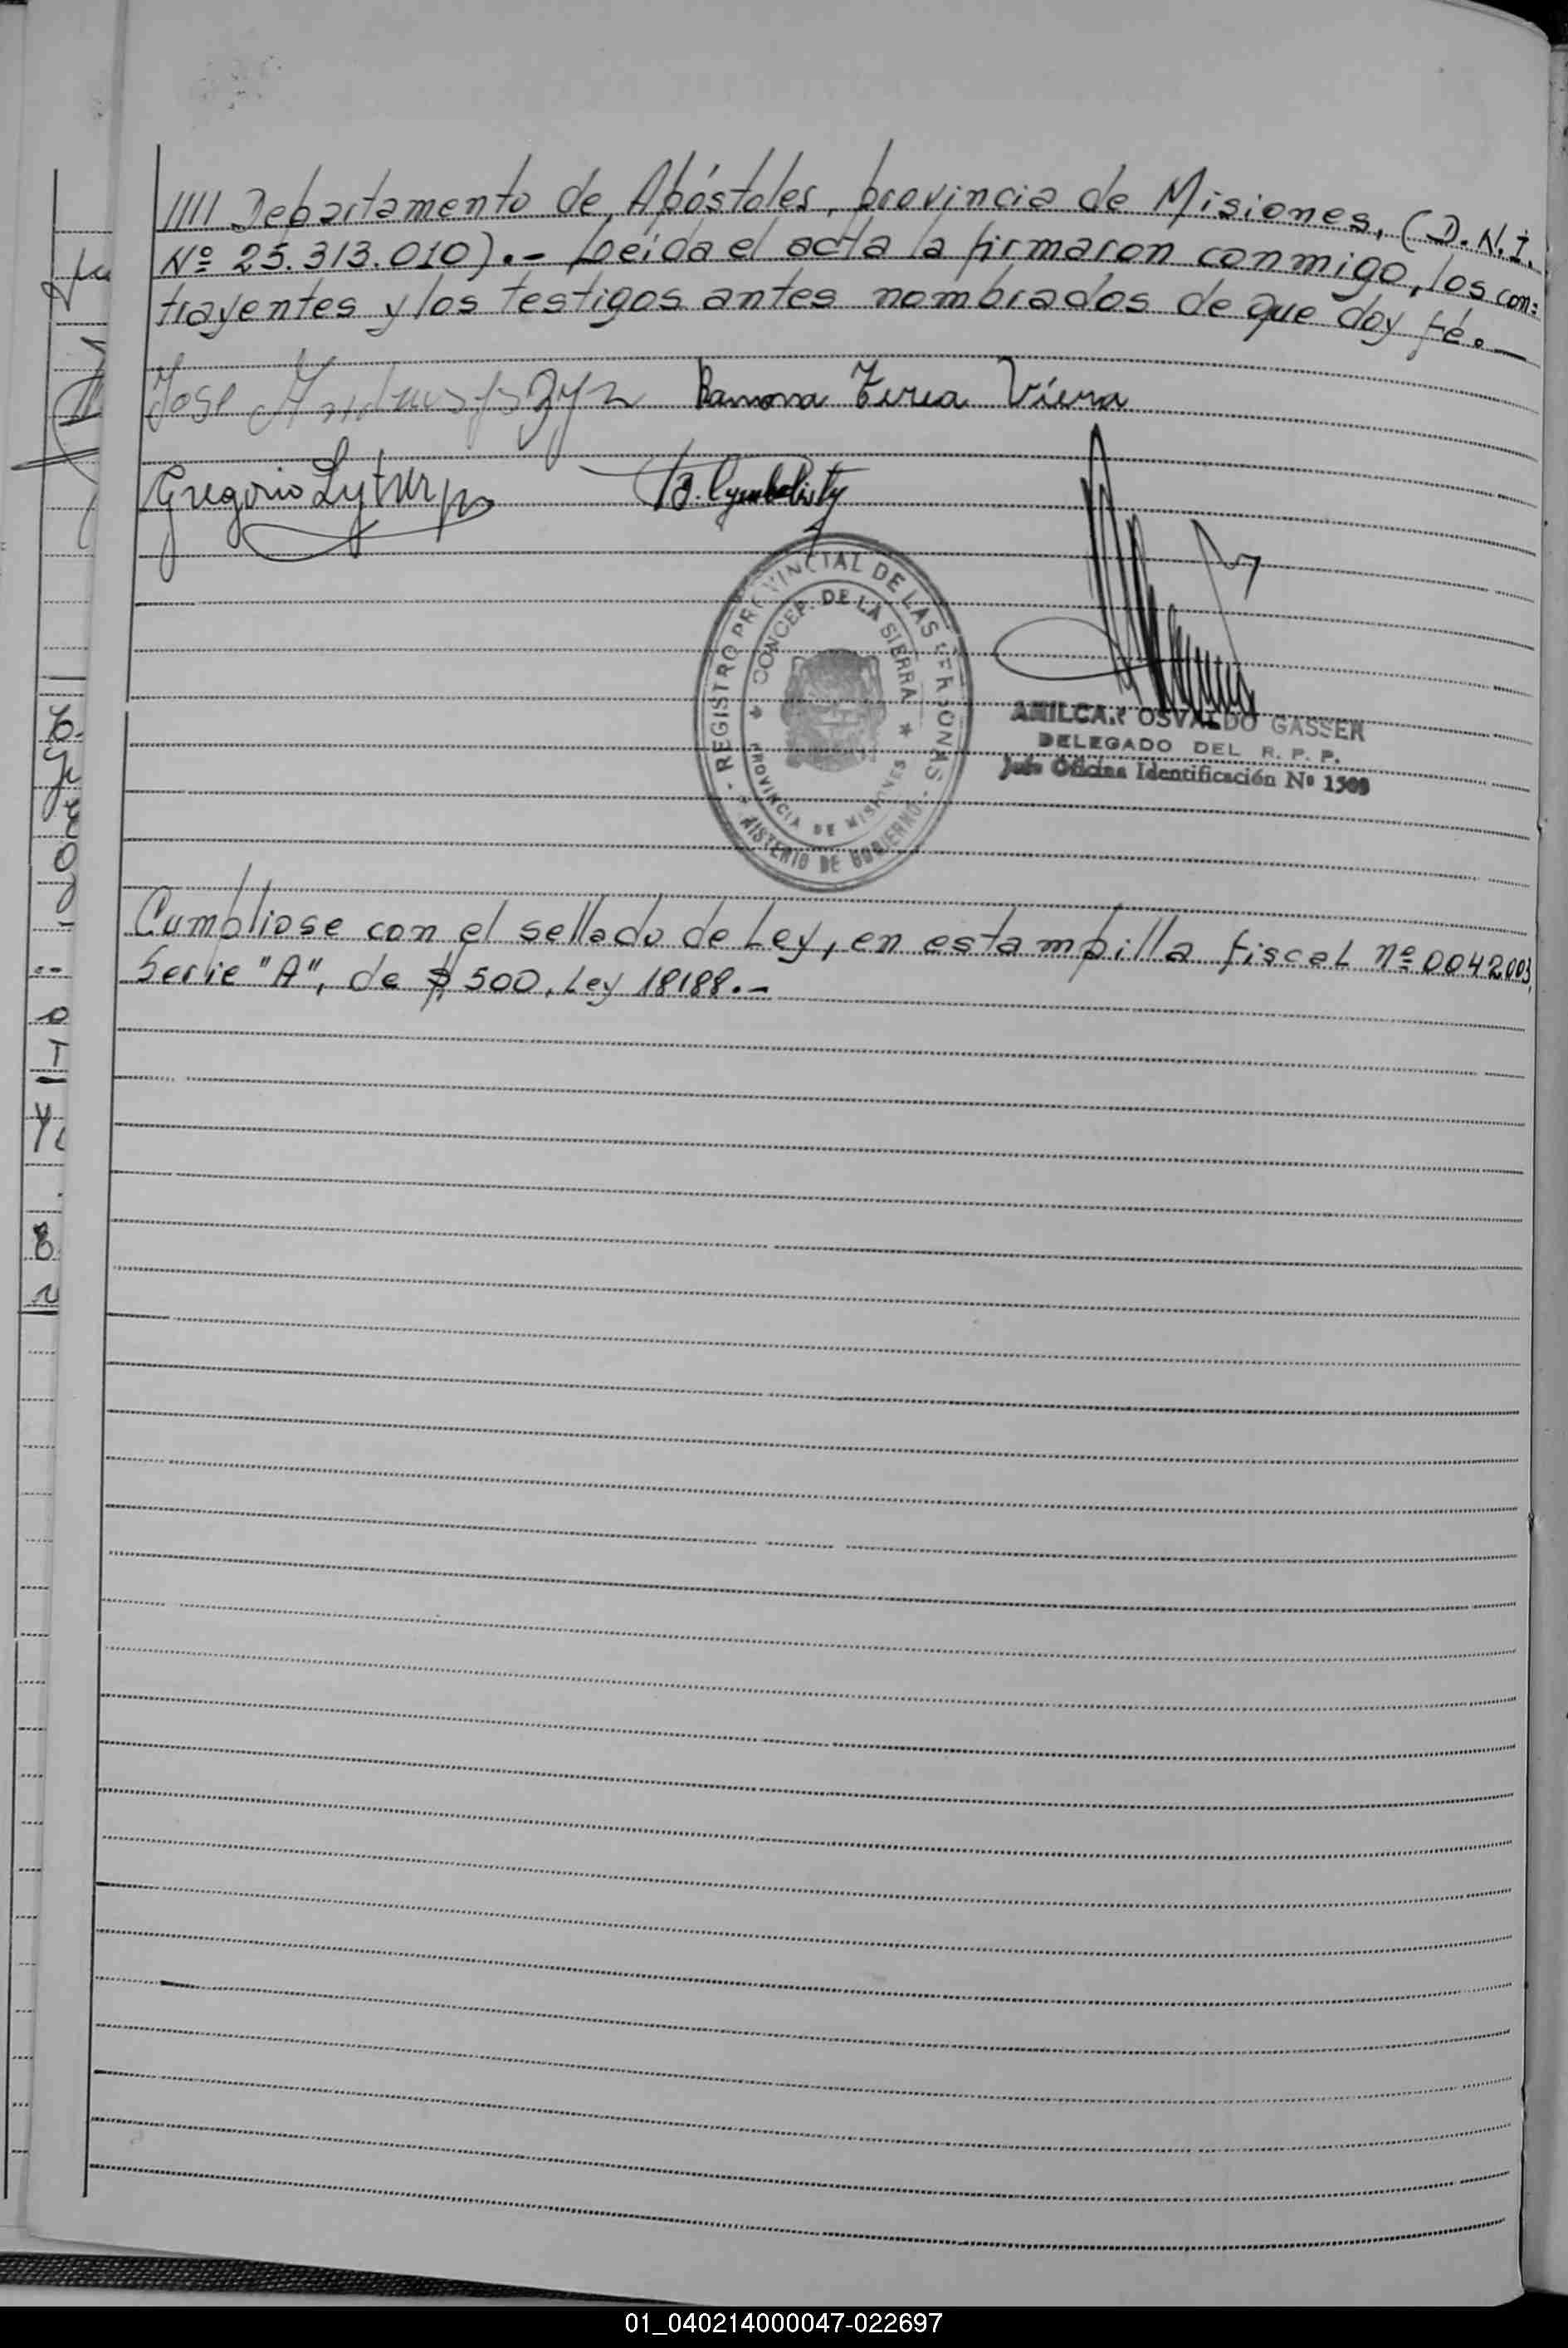 //// Departamento de Apóstoles, provincia de Misiones, (D.N.I.
Nº 25.313.010).- Leída el acta la firmaron conmigo, los con=
trayentes y los testigos antes nombrados de que doy fé.—
Jose
Ramona Viera
Gregorio
REGISTRO PROVINCIAL DE LAS PERSONAS
CONCEP. DE LA SIERRA
PROVINCIA DE MISIONES
MISTERIO DE GOBIERNO
AMILCAR OSVALDO GASSER
DELEGADO DEL R. P. P.
Jefe Oficina Identificación Nº 1509
Cumpliose con el sellado de Ley, en estampilla fiscal nº 0042003,
Serie "A", de $ 500, Ley 18188.-
01_040214000047-022697